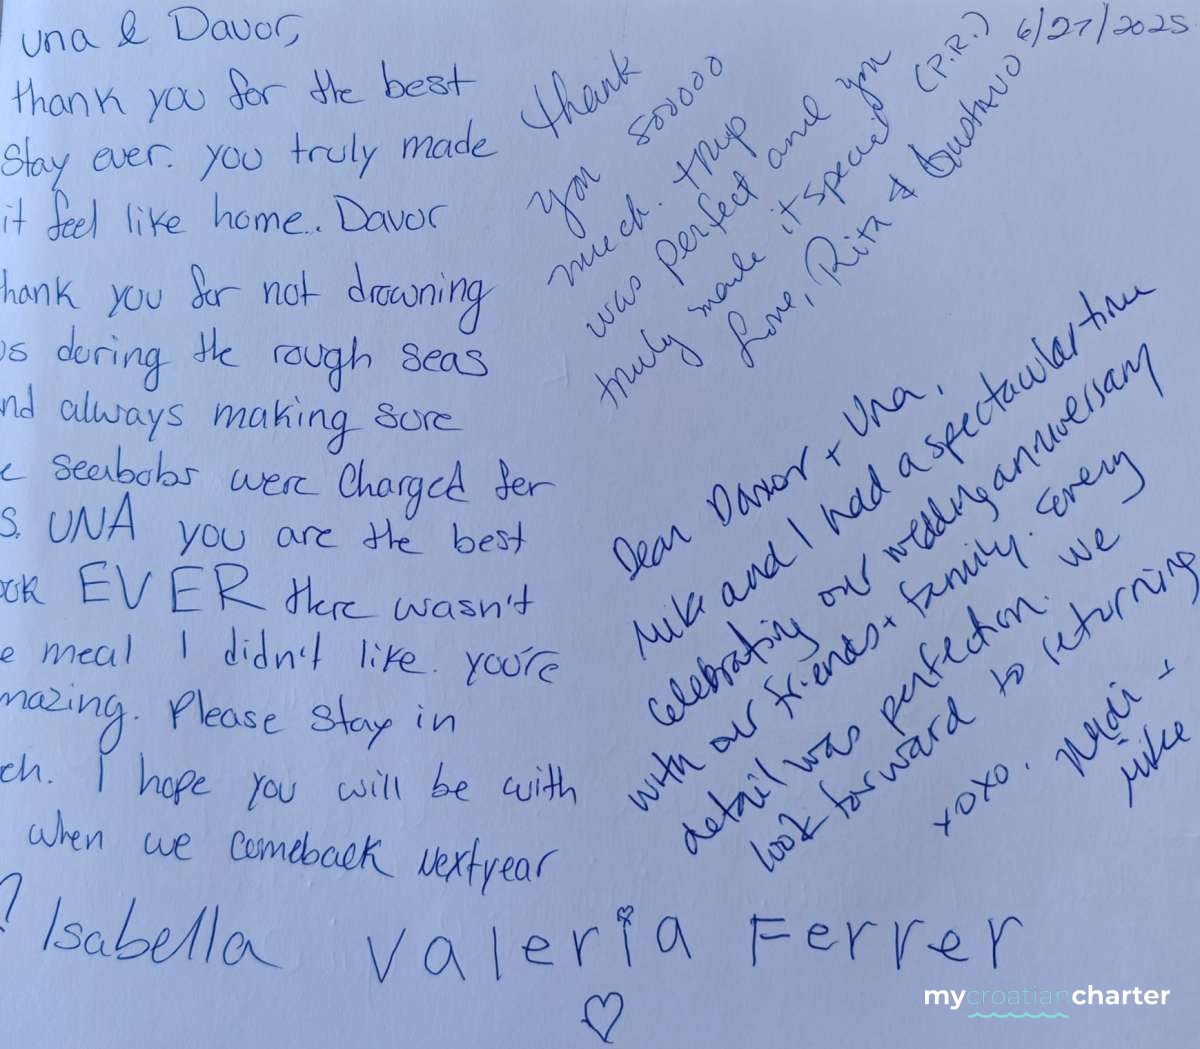 Una & Davor,
thank you for the best
stay ever. you truly made
it feel like home.. Davor
hank you for not drowning
us during the rough seas
nd always making sure
e seabobs were charged for
s. UNA you are the best
ook EVER there wasn't
e meal I didn't like. you're
mazing. Please stay in
ch. I hope you will be with
when we comeback next year
? Isabella Valeria Ferrer
6/27/2025
thank
you sooooo
much. trip
was perfect and you
truly made it special (P.R.)
Love, Rita & Gustavo
Dear Davor + Una,
Mike and I had a spectacular time
celebrating our wedding anniversary
with our friends + family. Every
detail was perfection. We
look forward to returning
xoxo. +
Mike
mycroatiancharter